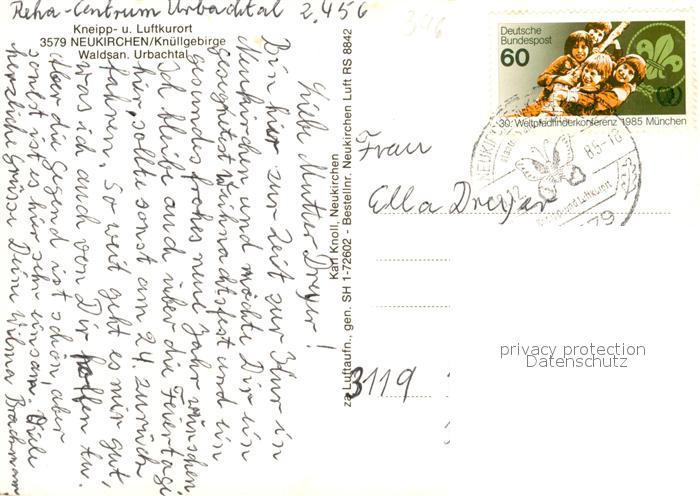 Reha-Centrum Urbachtal 2.456
Kneipp- u. Luftkurort
3579 NEUKIRCHEN/Knüllgebirge
Waldsan. Urbachtal
Liebe Mutter Dreyer!
Bin hier zur Zeit zur Kur in
Neukirchen und möchte Dir ein
gesegnetes Weihnachtsfest und ein
gesundes frohes neue Jahr wünschen
Ich bleibe auch über die Feiertage
hier, sollte sonst am 24. zurück
fahren. So weit geht es mir gut,
was ich auch von Dir hoffen tu.
Aber die Gegend ist schön, aber
sonst ist es hier sehr einsam. Viele
herzliche Grüsse Deine Wilma Brachmann
Karl Knoll, Neukirchen
za Luftaufn., gen. SH 1-72602 - Bestellnr. Neukirchen Luft RS 8842
346
Deutsche
Bundespost
60
30. Weltpfadfinderkonferenz 1985 München
NEUKIRCHEN
Kneipp- und Luftkurort
Frau
Ella Dreyer
3119
privacy protection
Datenschutz